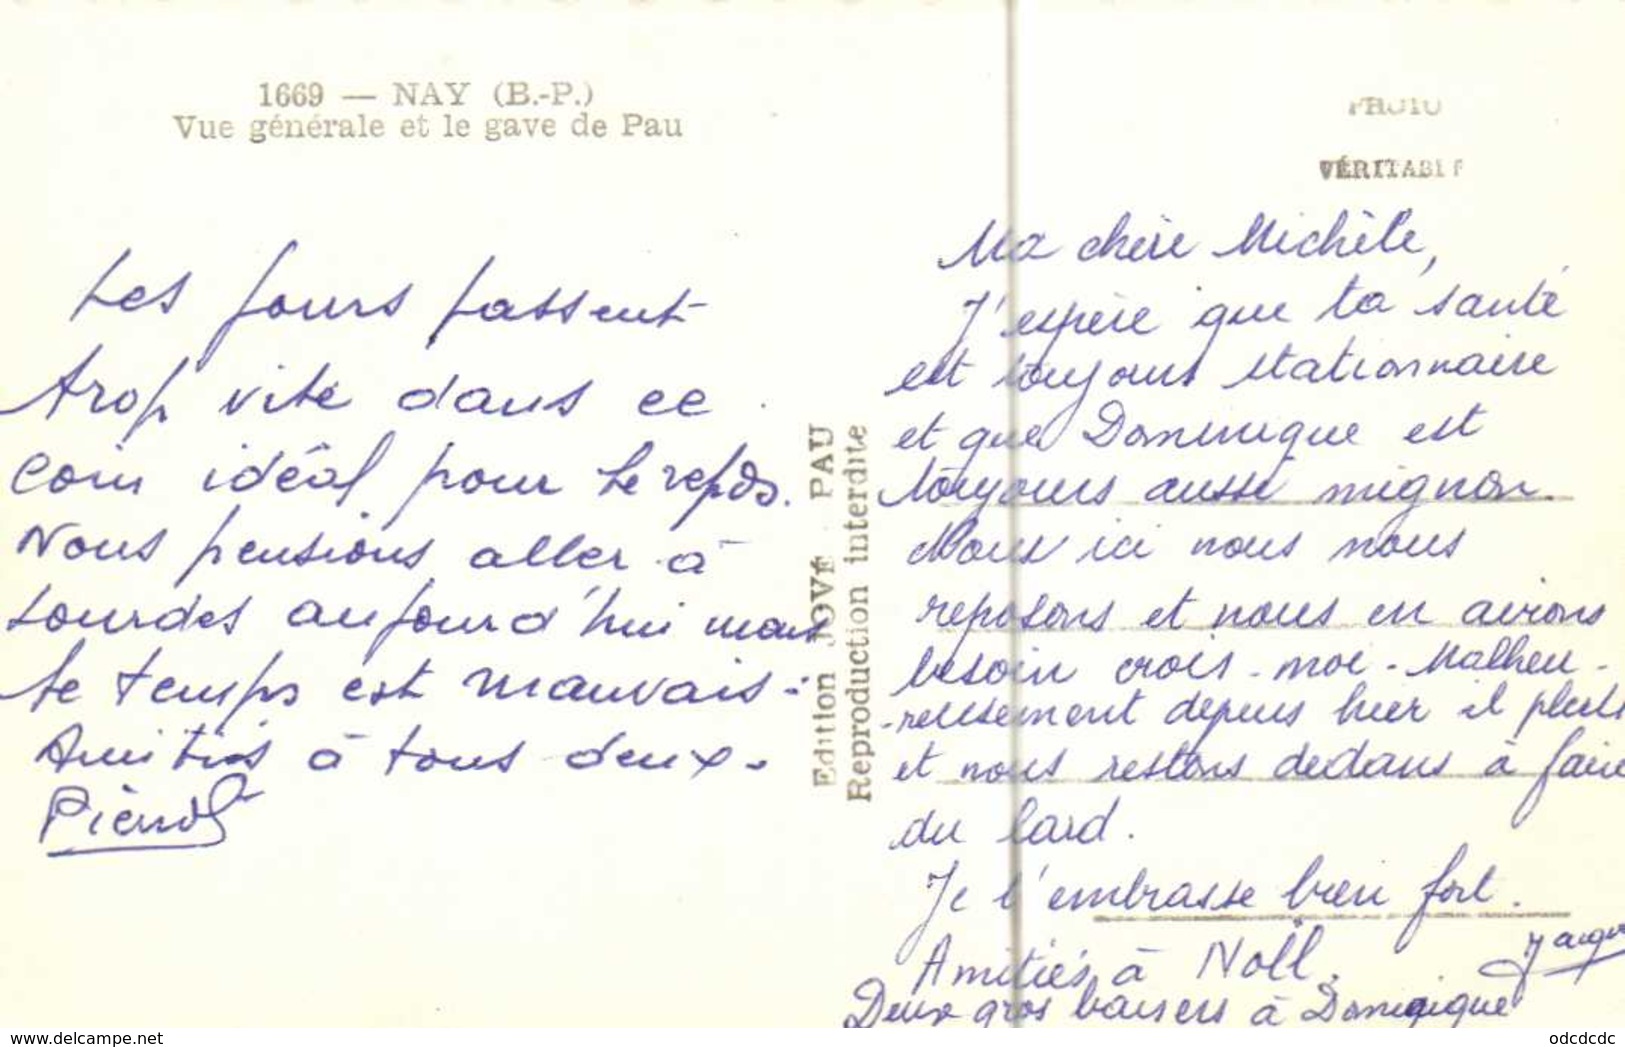 1669 — NAY (B.-P.)
Vue générale et le gave de Pau
Les jours passent
trop vite dans ce
coin idéal pour le repos.
Nous pensions aller à
Lourdes aujourd'hui mais
le temps est mauvais.
Amitiés à tous deux.
Pierrot
Edition JOVÉ PAU
Reproduction interdite
PHOTO
VÉRITABLE
Ma chère Michèle,
J'espère que ta santé
est toujours stationnaire
et que Dominique est
toujours aussi mignon.
Nous ici nous nous
reposons et nous en avions
besoin crois-moi. Malheu-
-reusement depuis hier il pleut
et nous restons dedans à faire
du lard.
Je t'embrasse bien fort.
Amitiés à Noël.
Deux gros baisers à Dominique
www.delcampe.net
odcdcdc